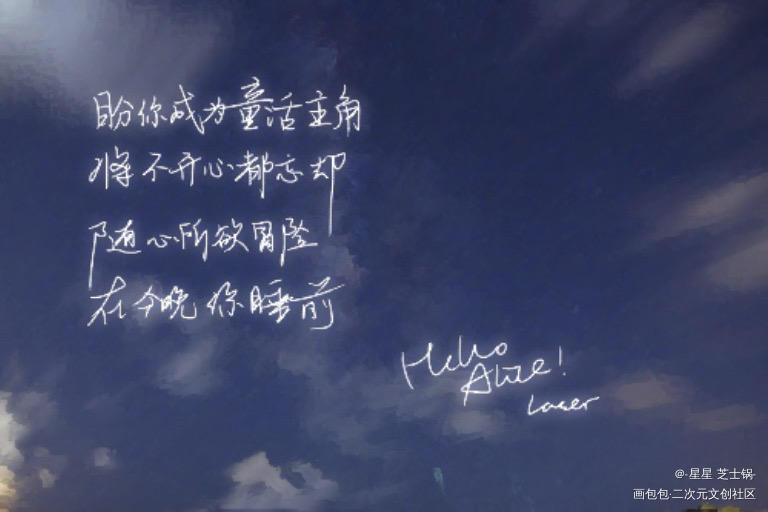 盼你成为童活主角
将不开心都忘却
随心所欲冒险
在今晚你睡前
Hello
Alice!
Laser
@-星星 芝士锅-
画包包·二次元文创社区